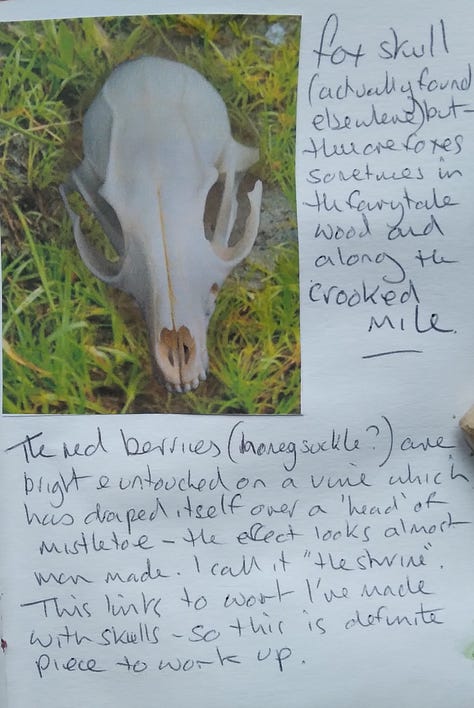 fox skull
(actually found
elsewhere) but
there are foxes
sometimes in
the fairytale
wood and
along the
crooked
Mile.
The red berries (honeysuckle?) are
bright & untouched on a vine which
has draped itself over a 'head' of
mistletoe - the effect looks almost
man made. I call it "the shrine".
This links to work I've made
with skulls - so this is definite
piece to work up.